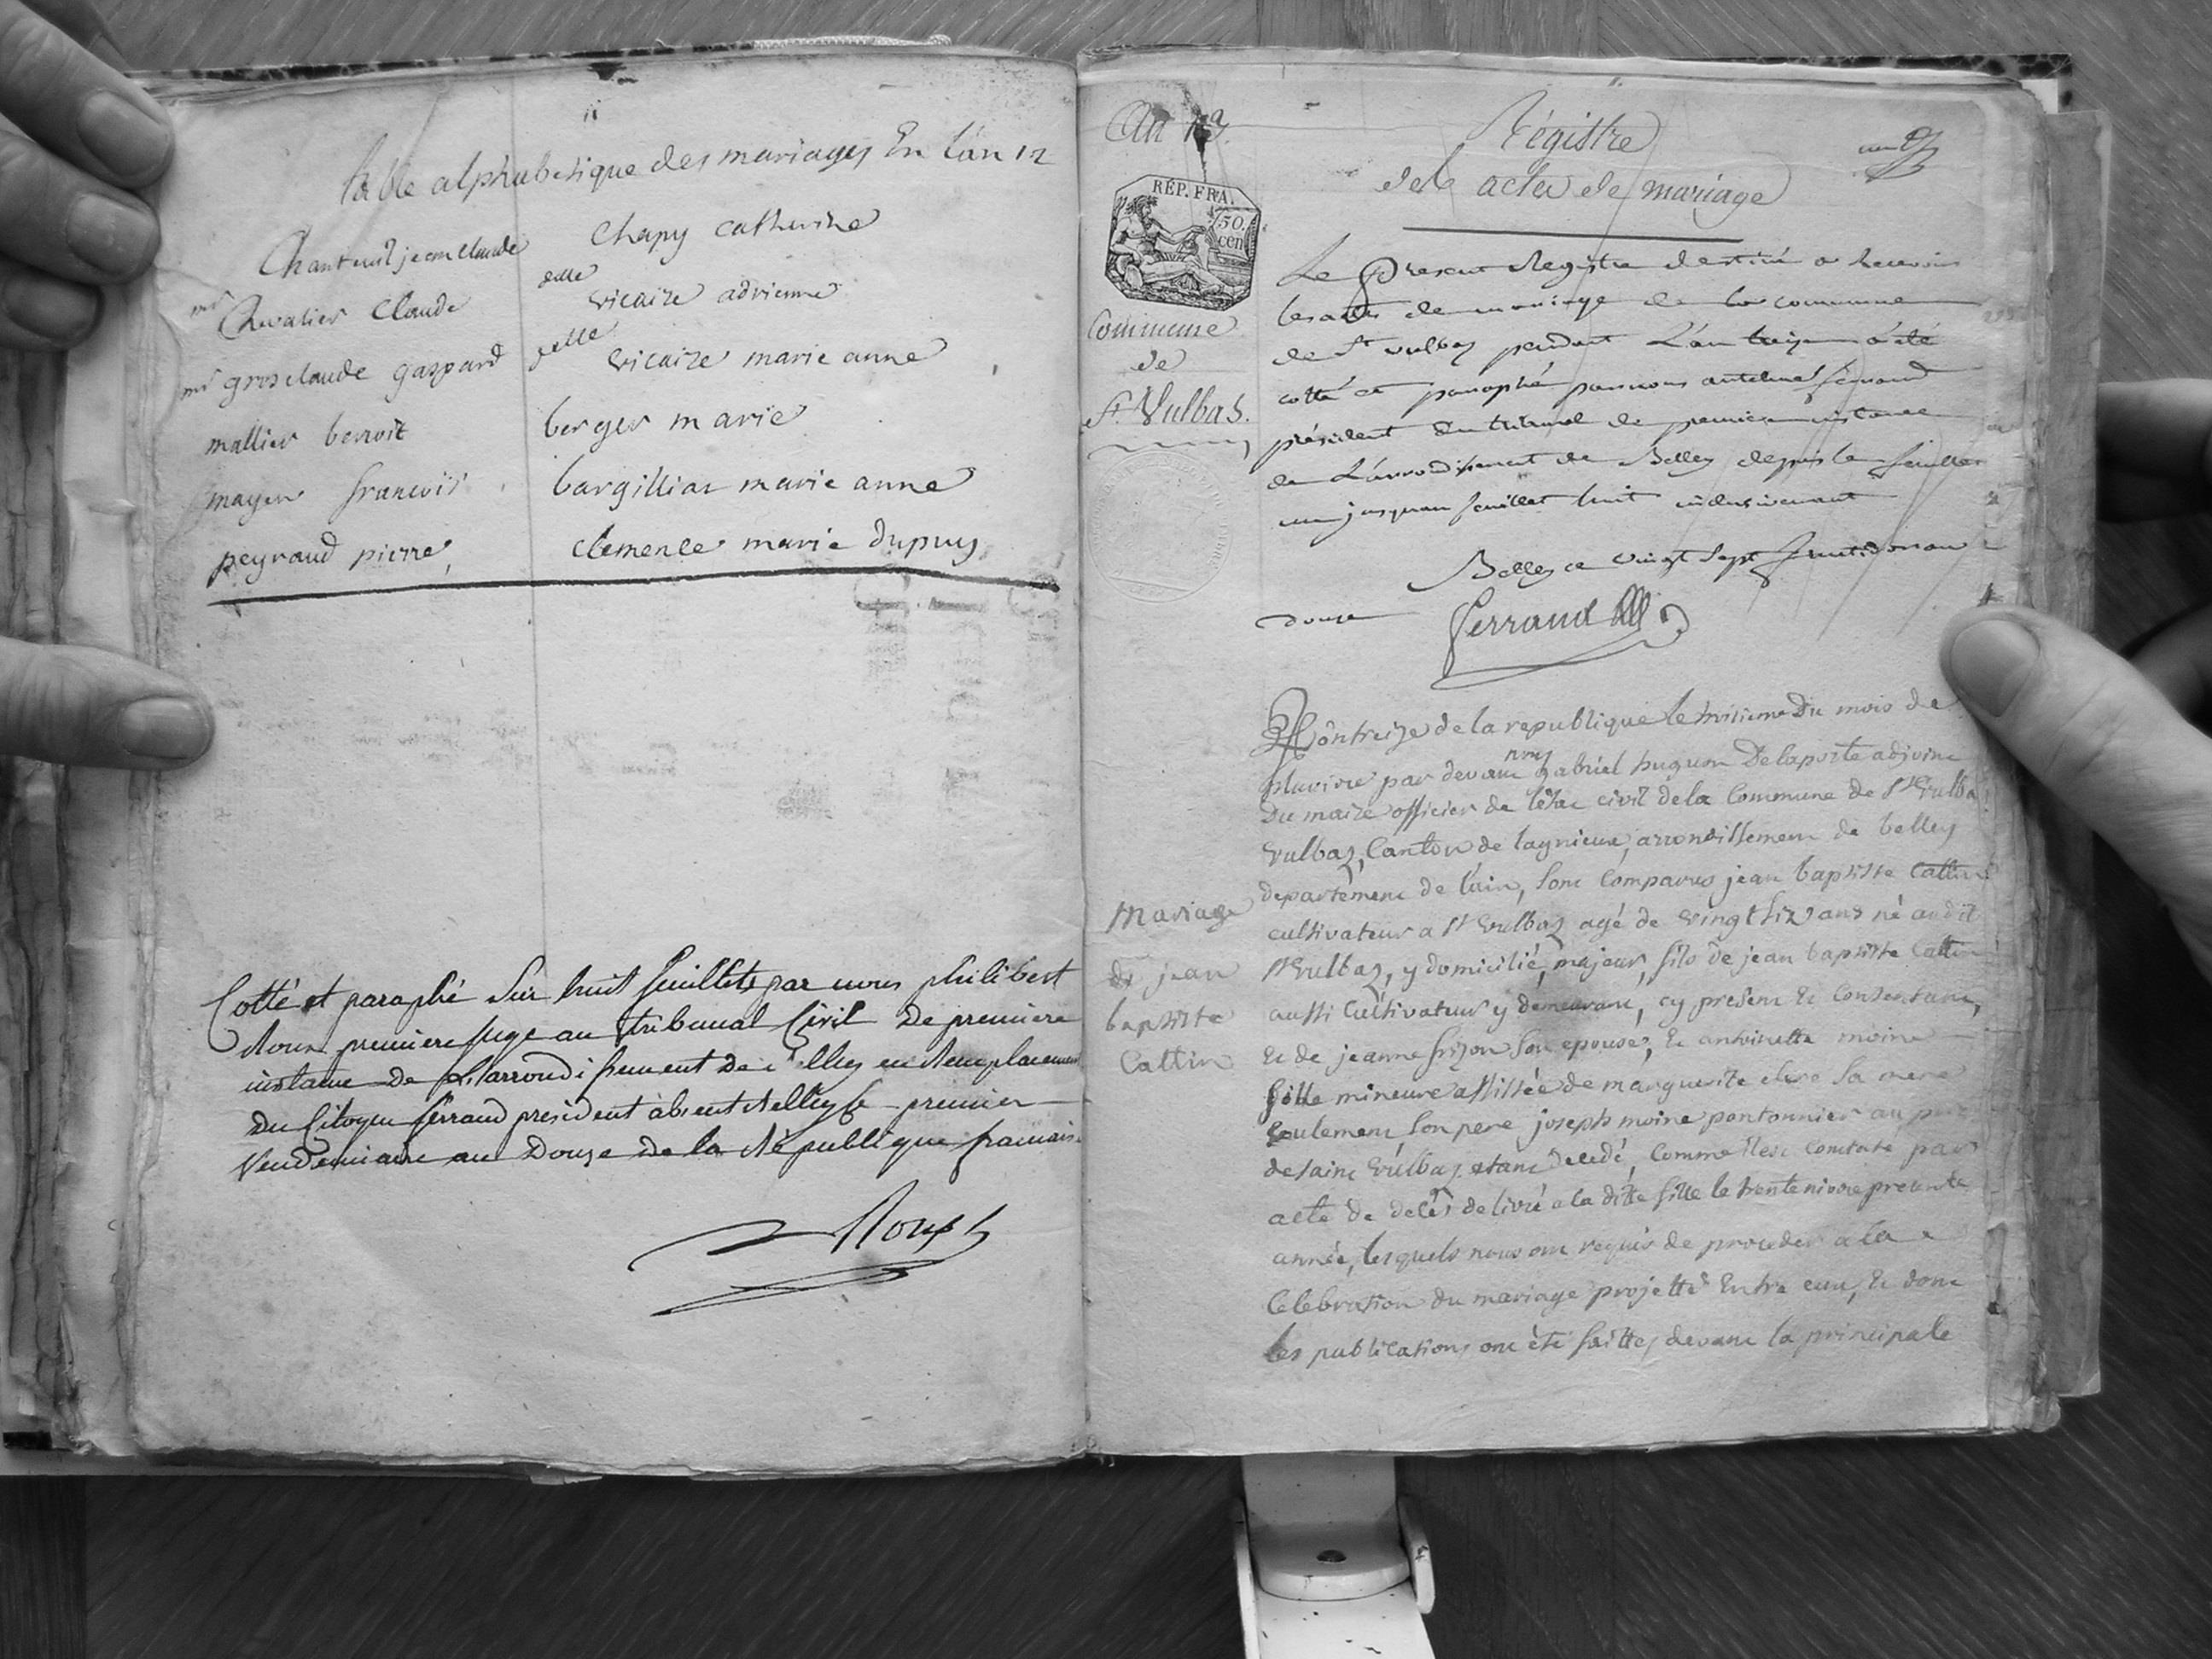 table alphabetique des mariages En l'an 12
Chanteuil jean claude chapy catherine
mr Chevalier Claude delle vicaire adrienne
mr grosclaude gaspard delle vicaire marie anne
mallier benoit berger marie
mayer francois bargilliat marie anne
peyraud pierre, clemence marie dupuy
Cotté et paraphé Sur huit feuillets par nous philibert
Roux premiere juge au tribunal Civil De premiere
instance De L'arrondissement De Belley en Remplacement
Du Citoyen ferrand president absent Belley le premier
Vendemiaire an Douze de la République francaise
Roux
An 13
Régistre
des actes de mariage
un
RÉP. FRA.
50.
cen
Commune
de
St Vulbas.
Le present Registre destiné a Recevoir
les actes de mariage de la commune
de St vulbas pendant L'an treize a été
cotté et paraphé par nous antelme ferrand
président du tribunal de premiere instance
de L'arrondissement de Belley depuis le feuillet
un jusqu'au feuillet huit inclusivement
Belley ce vingt sept fructidor an
douze ferrand
L'an treize de la republique le huitieme du mois de
pluviose par devant nous gabriel hugon Delaporte adjoint
Du maire officier de l'état civil de la Commune de St Vulbas
Vulbas, Canton de lagnieux, arrondissement de belley
departement de l'ain, sont Comparus jean baptiste Cattin
cultivateur a St Vulbas agé de vingt six ans né audit
St Vulbas, y domicilié, majeur, fils de jean baptiste Cattin
aussi Cultivateur y demeurant, cy present et Consentant,
et de jeanne frizon son epouse, Et antoinette moine
fille mineure assistée de marguerite clerc sa mere
seulement son pere joseph moine pontonnier au port
de saint Vulbas etant decedé, Comme il est Constaté par
acte de decès delivré a la dite fille le trente nivose presente
année, lesquels nous ont requis de proceder a la
Celebration du mariage projetté Entre eux, et dont
les publications ont été faittes devant la principale
Mariage
de jean
baptiste
Cattin